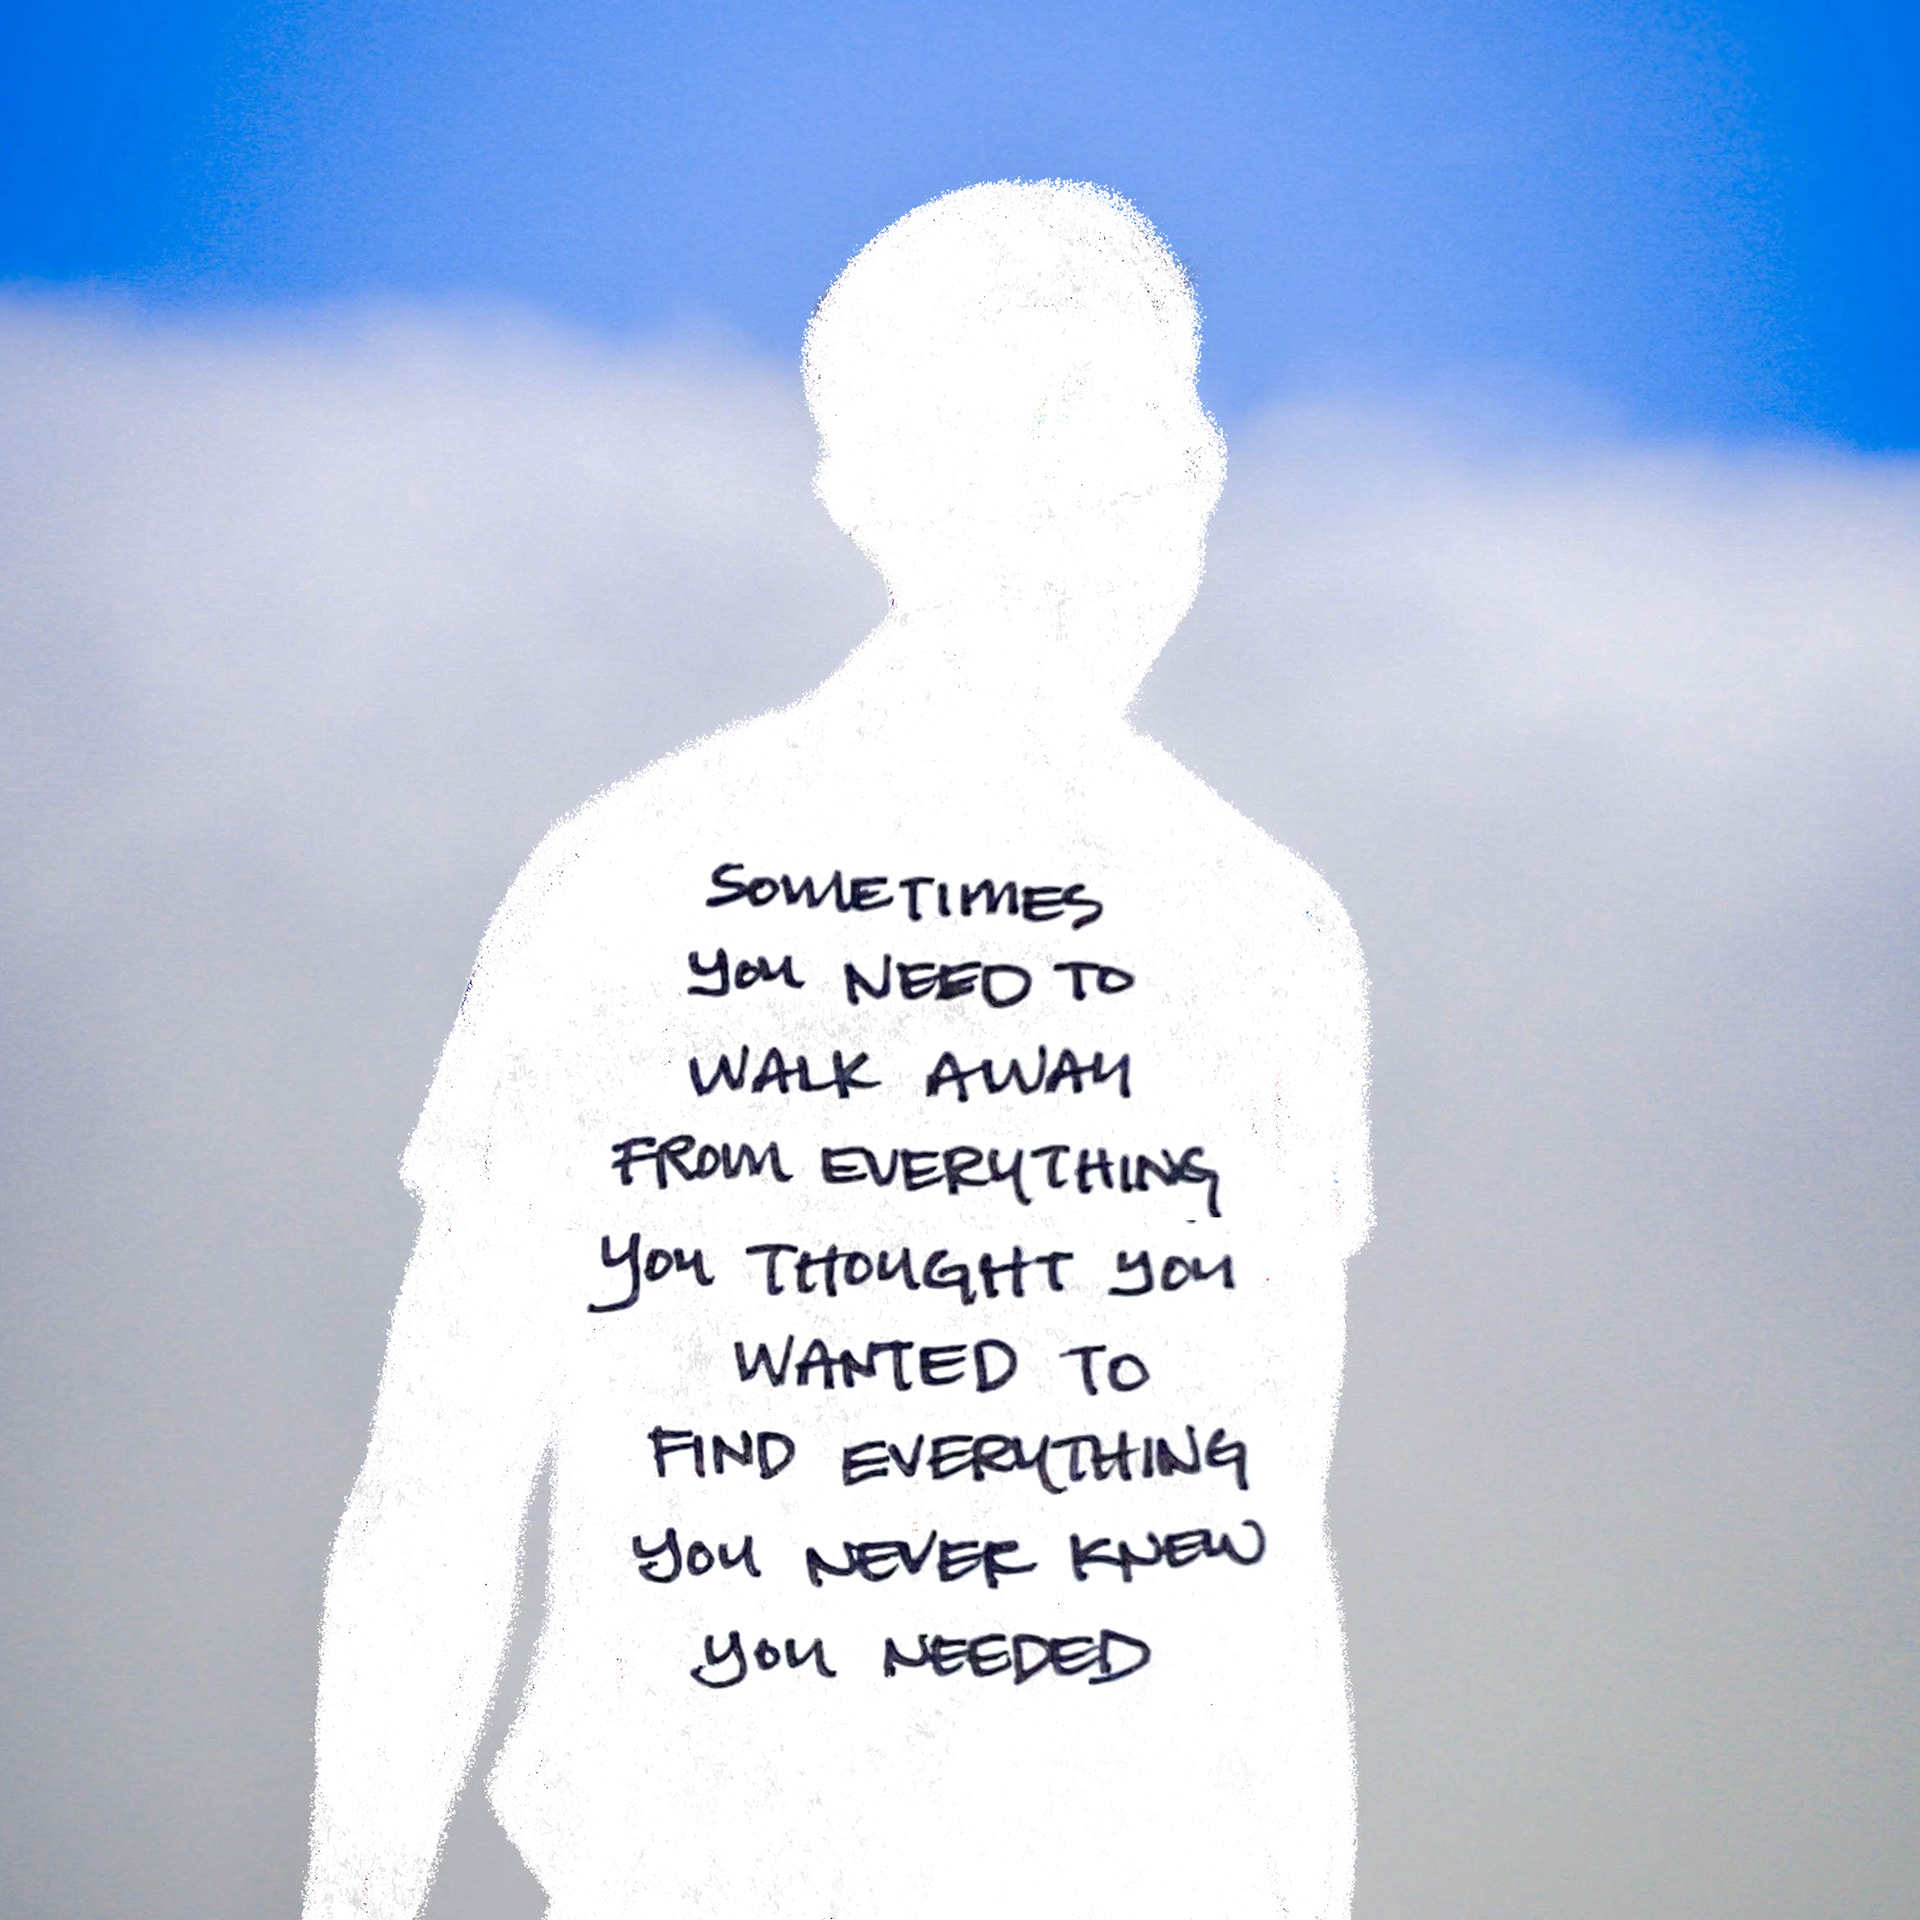 SOMETIMES
YOU NEED TO
WALK AWAY
FROM EVERYTHING
YOU THOUGHT YOU
WANTED TO
FIND EVERYTHING
YOU NEVER KNEW
YOU NEEDED